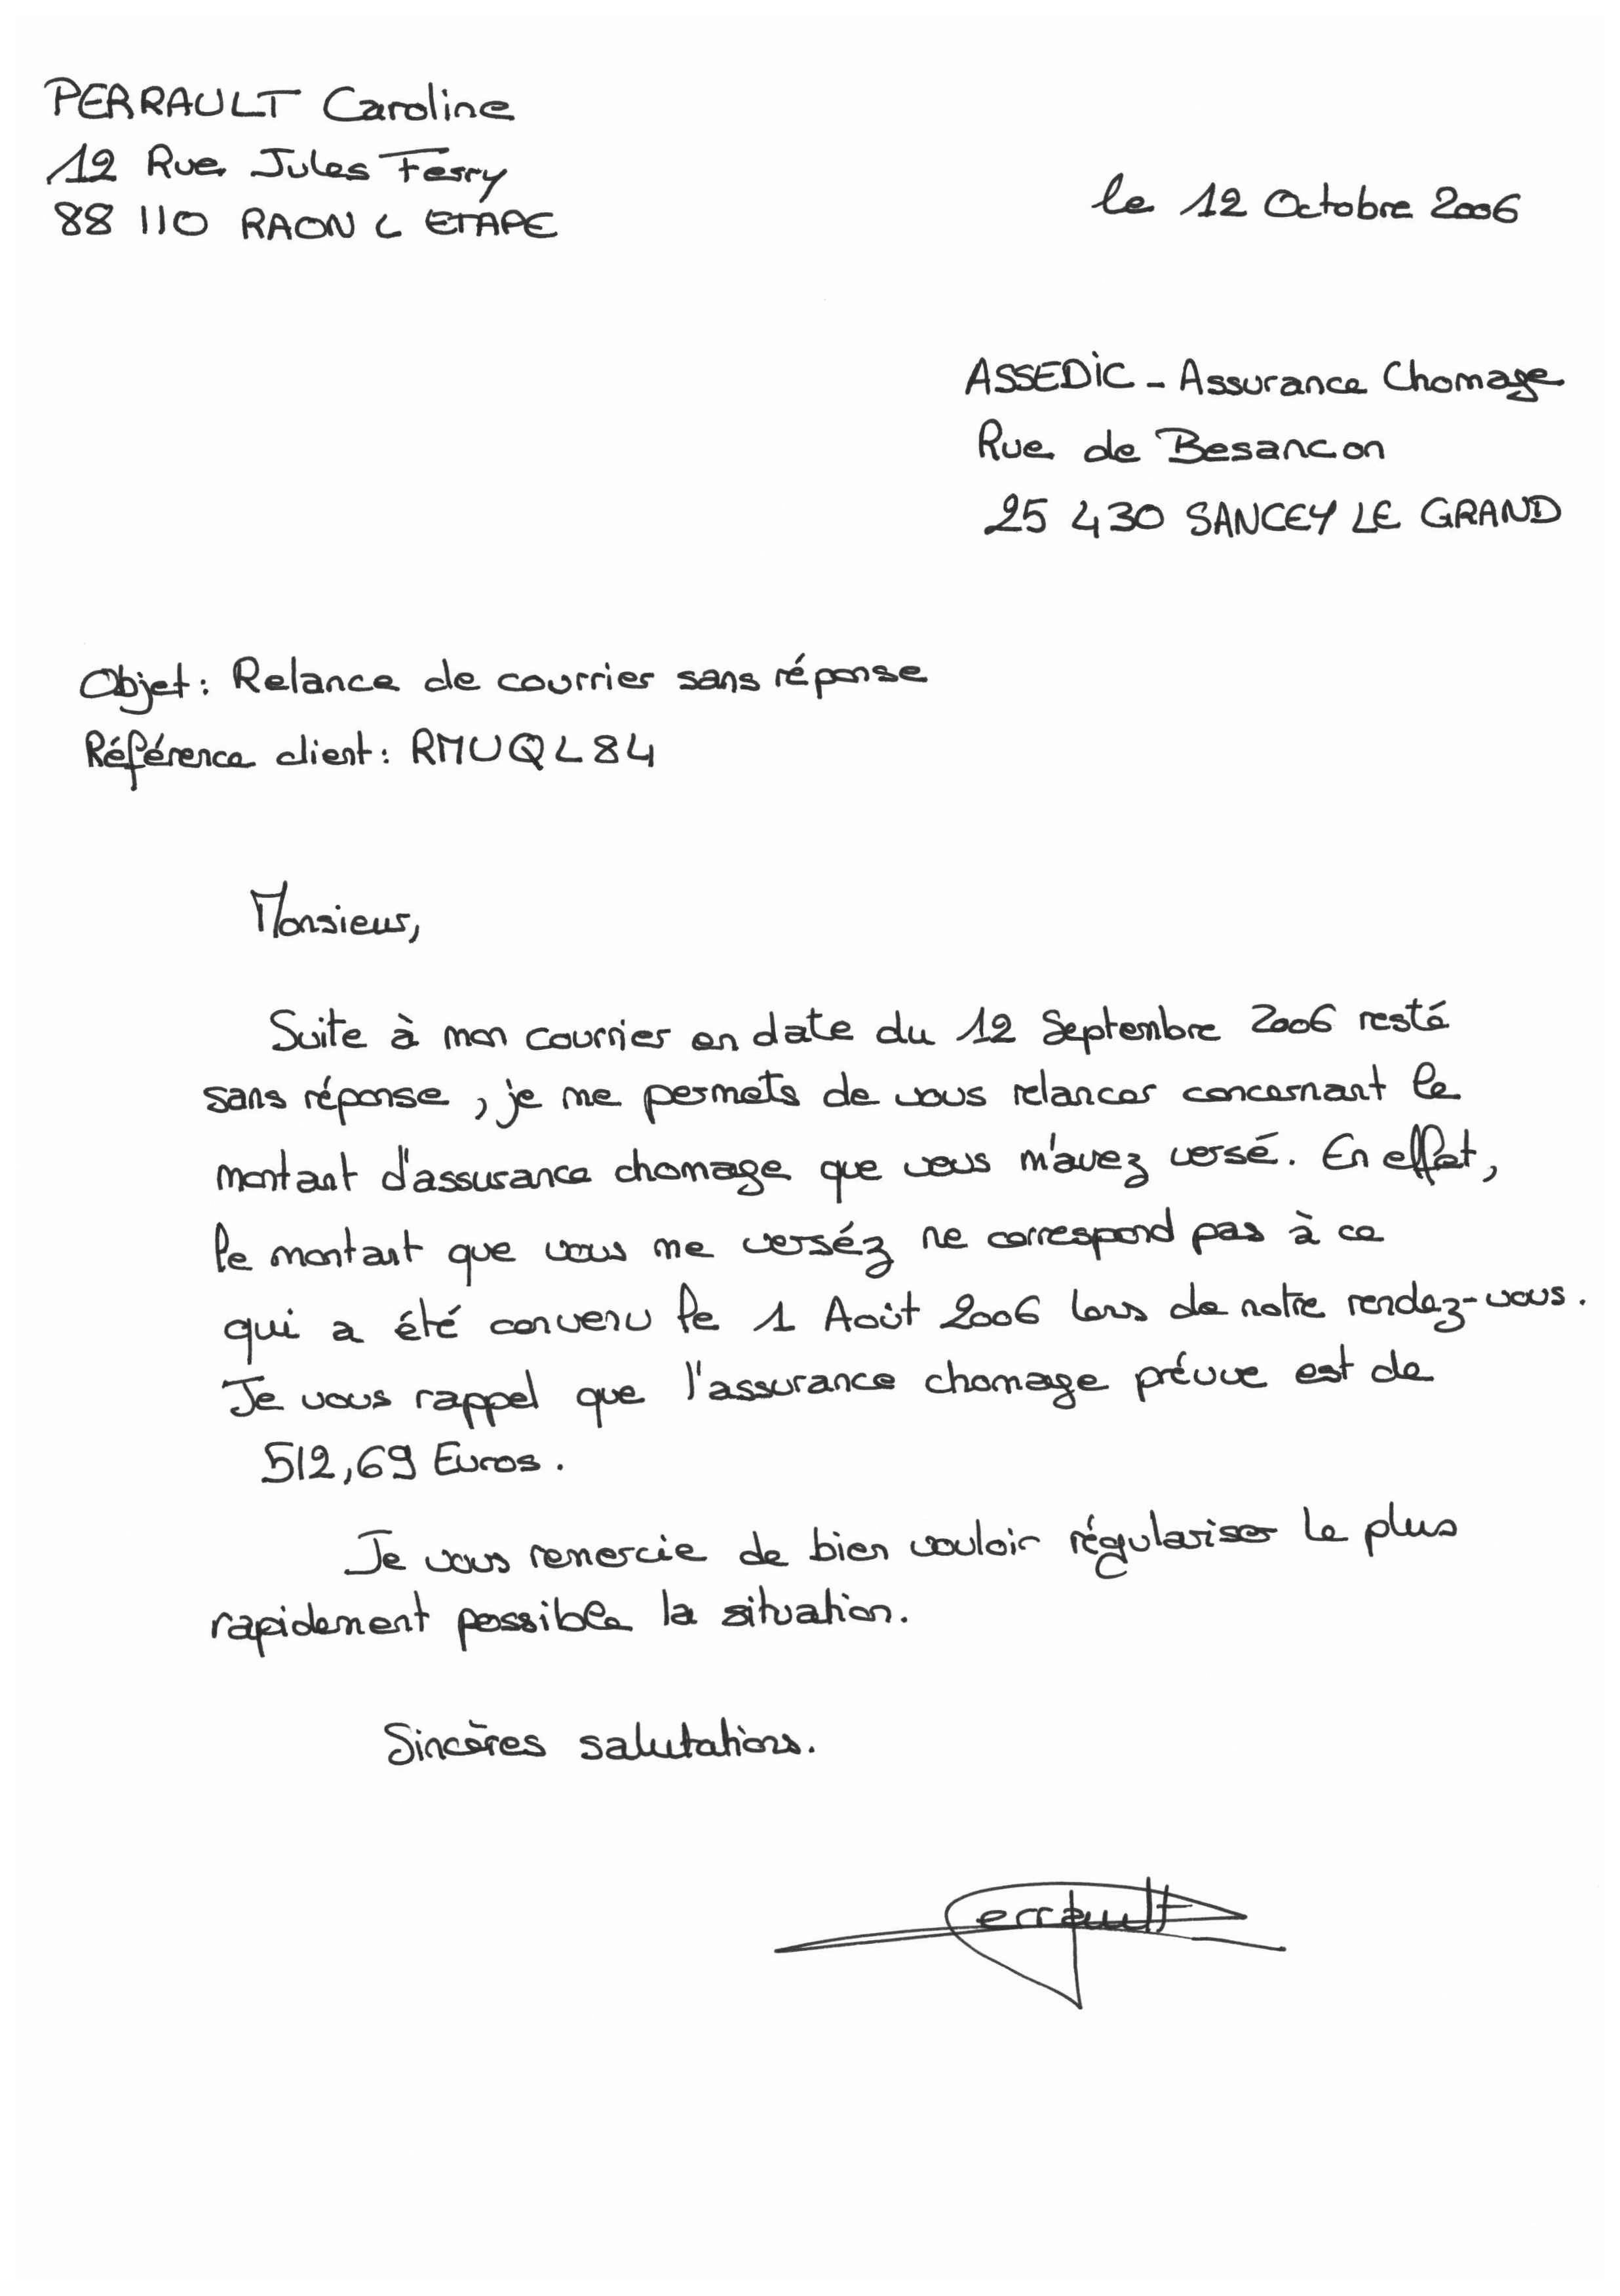 PERRAULT Caroline
12 Rue Jules Ferry
88 110 RAON L ETAPE
le 12 Octobre 2006
ASSEDIC - Assurance Chomage
Rue de Besancon
25 430 SANCEY LE GRAND
Objet : Relance de courrier sans réponse
Référence client : RMUQL84
Monsieur,
Suite à mon courrier en date du 12 Septembre 2006 resté
sans réponse, je me permets de vous relancer concernant le
montant d'assurance chomage que vous m'avez versé. En effet,
le montant que vous me verséz ne correspond pas à ce
qui a été convenu le 1 Août 2006 lors de notre rendez-vous.
Je vous rappel que l'assurance chomage prévue est de
512,69 Euros.
Je vous remercie de bien vouloir régulariser le plus
rapidement possible la situation.
Sincères salutations.
Perrault